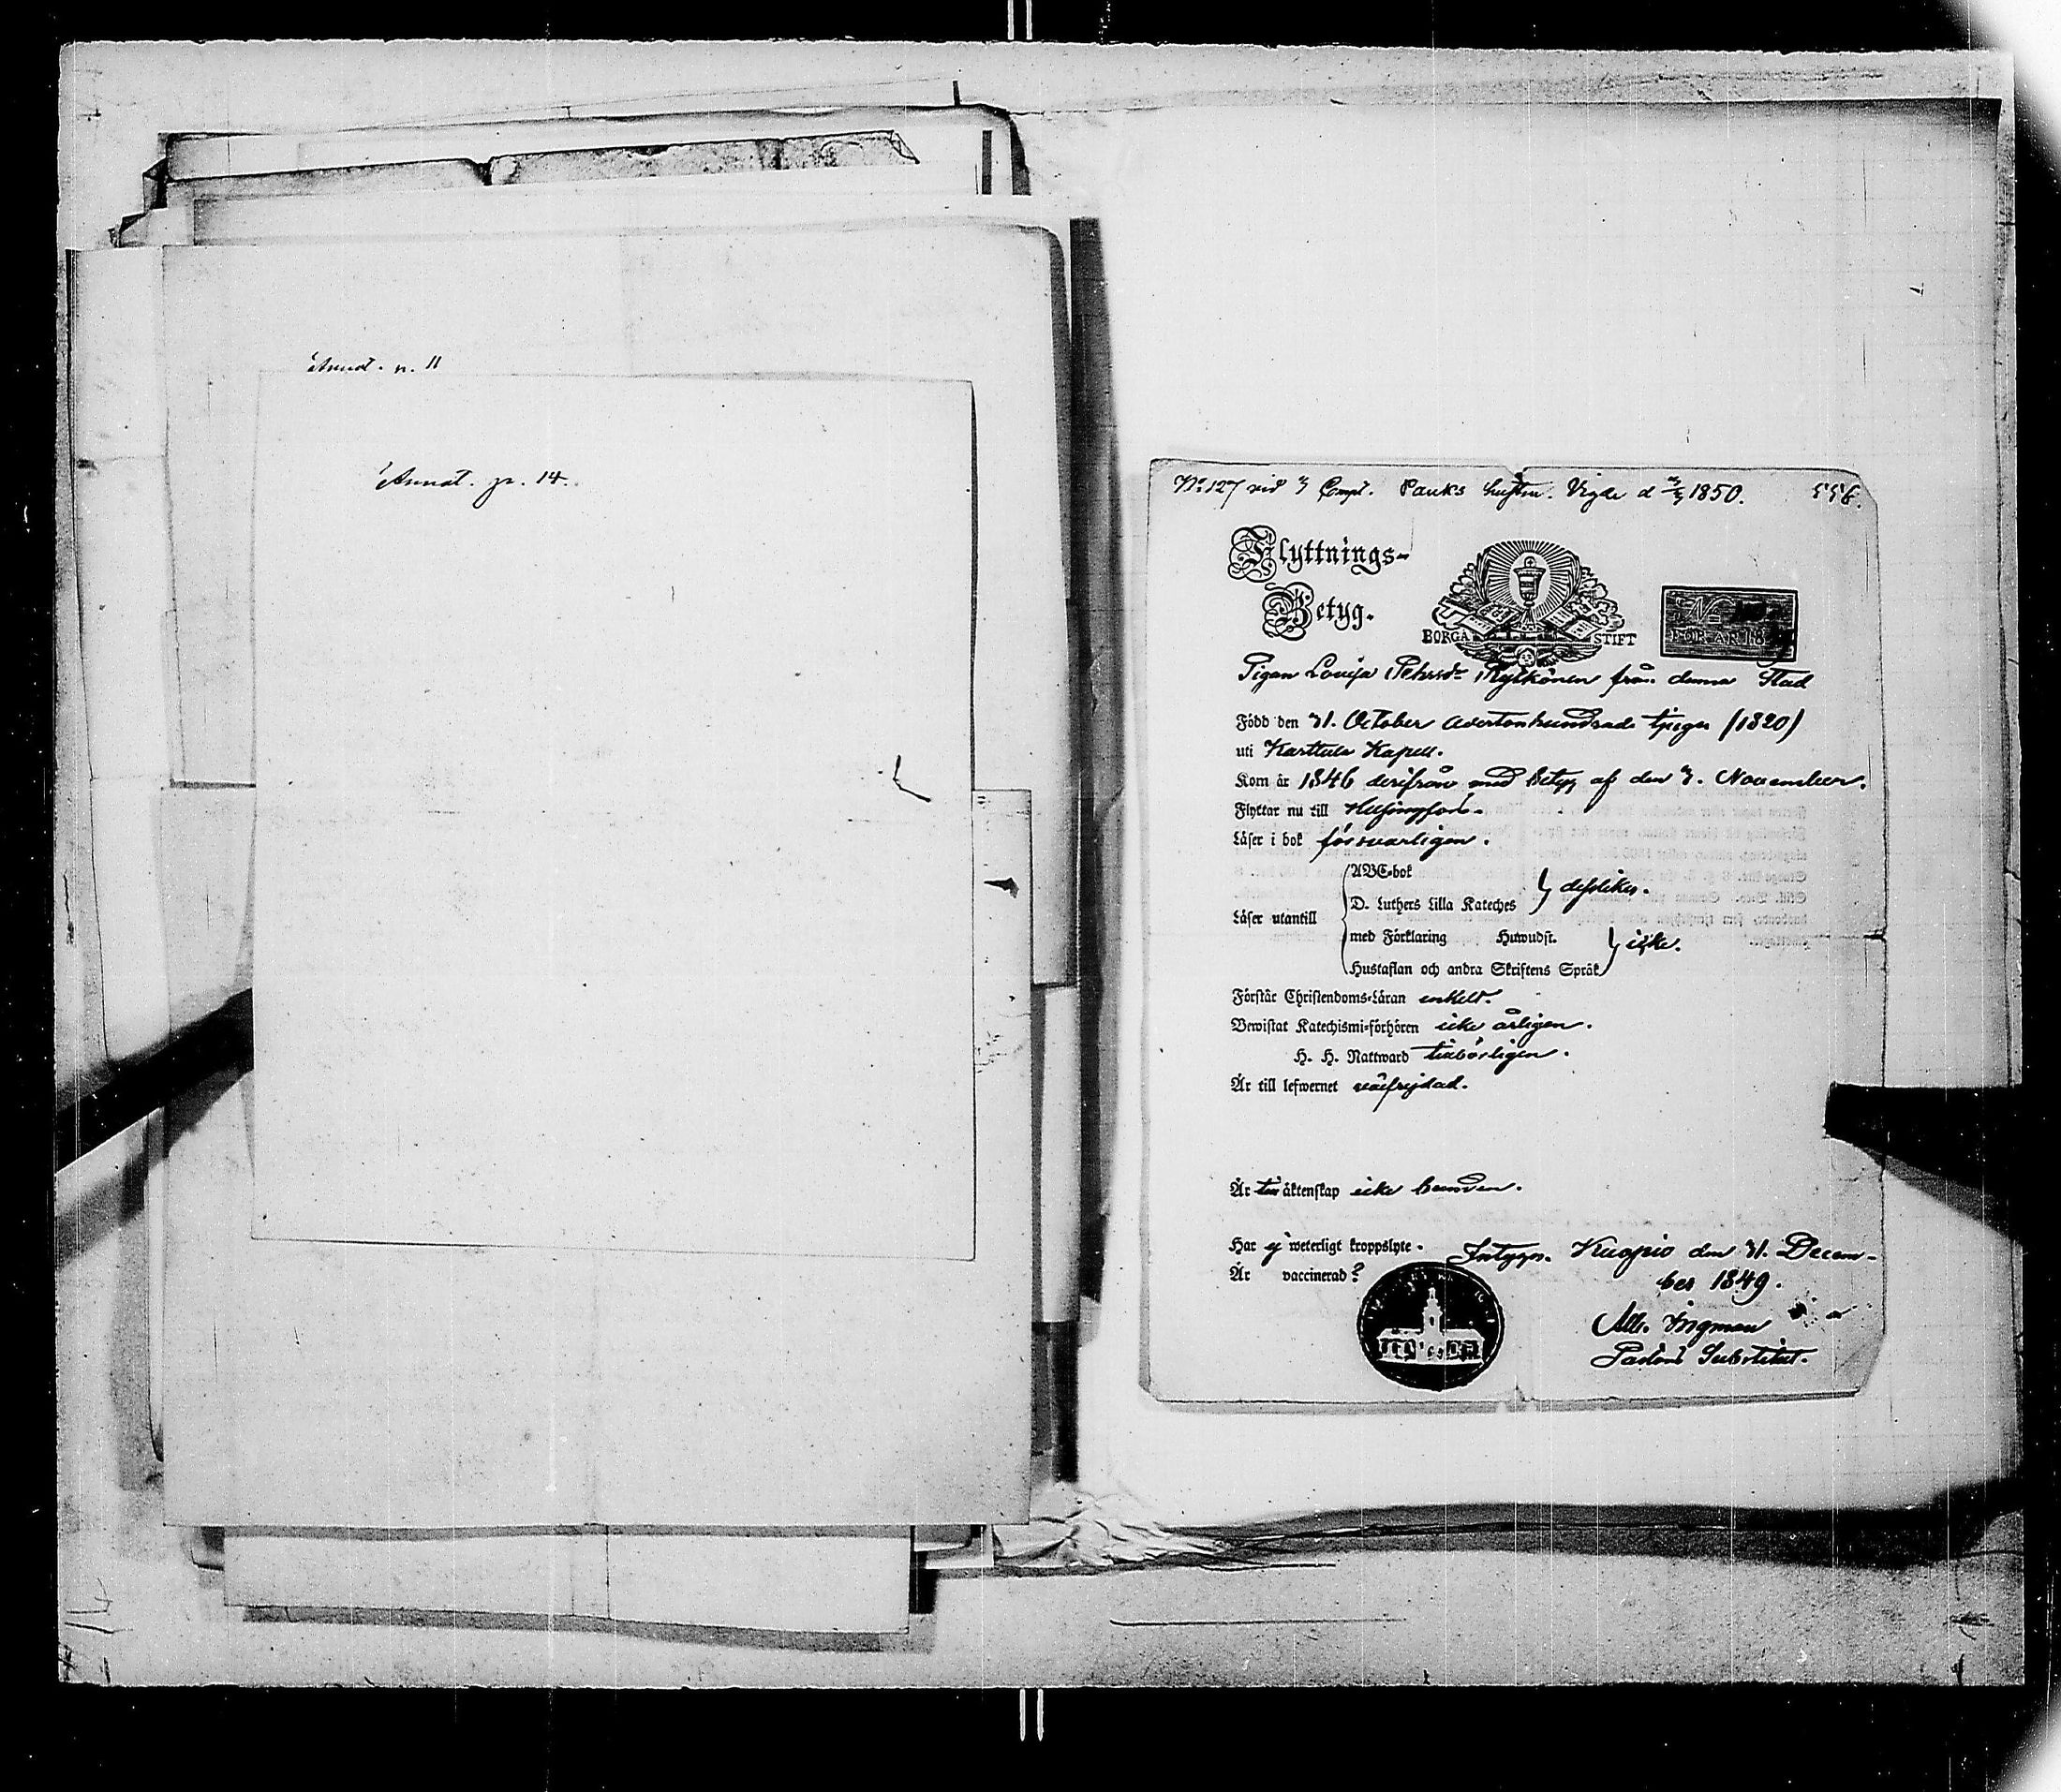 Annot. p. 11
Annot. p. 14.
No 127 vid 3 Comp. Pauks hustru. Vigde d 1850. 556.
Flyttnings-
Betyg.
BORGÅ STIFT
No
FÖR ÅR 18
Pigan Lovisa Petersdr Rytkönen från denna Stad
Född den 31. October adertonhundrade tjugu (1820)
uti Karttula Kapell.
Kom år 1846 derifrån med betyg af den 3. November.
Flyttar nu till Helsingfors.
Läser i bok försvarligen.
ABC-bok
D. Luthers Lilla Kateches } desslikes.
Läser utantill
med Förklaring Huwudst.
Hustaflan och andra Skriftens Språk } icke.
Förstår Christendoms-Läran enkelt.
Bewistat Katechismi-förhören icke årligen.
H. H. Nattward tillbörligen.
Är till lefwernet välfrejdad.
Är till äktenskap icke bunden.
Har ej weterligt kroppslyte. Intygar. Kuopio den 31. Decem-
Är vaccinerad? ber 1849.
Alb. Ingman
Pastors Substitut.